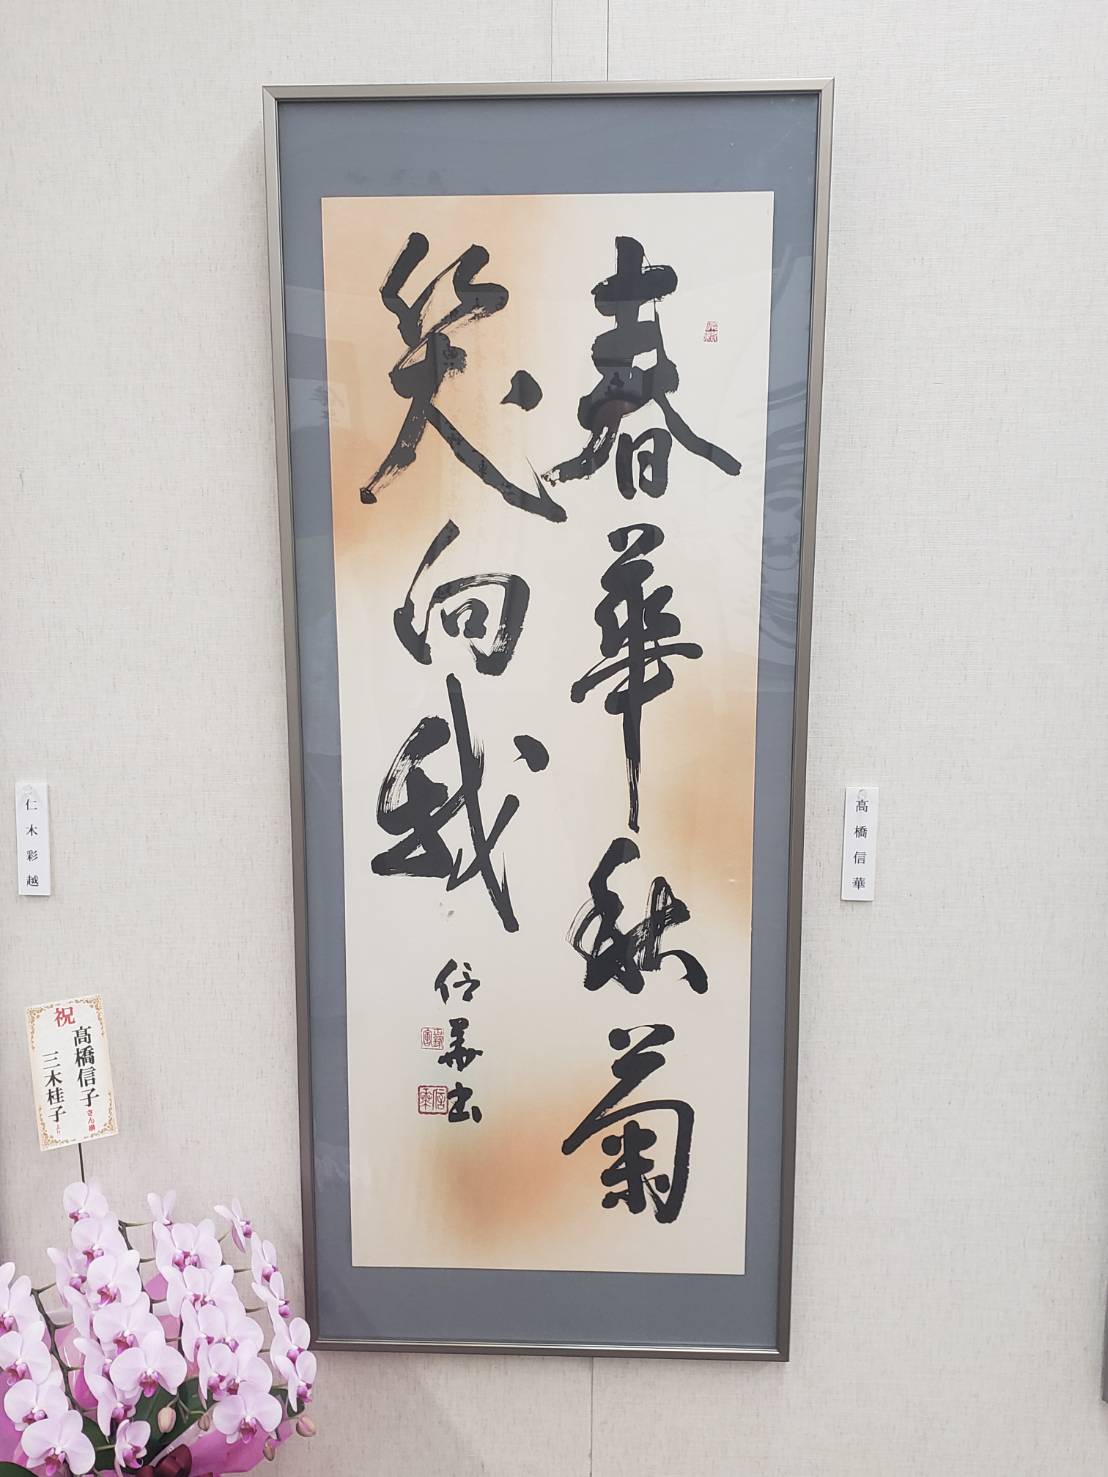 春華秋菊
笑向我
信華書
髙橋信華
仁木彩越
祝
髙橋信子さん江
三木桂子より